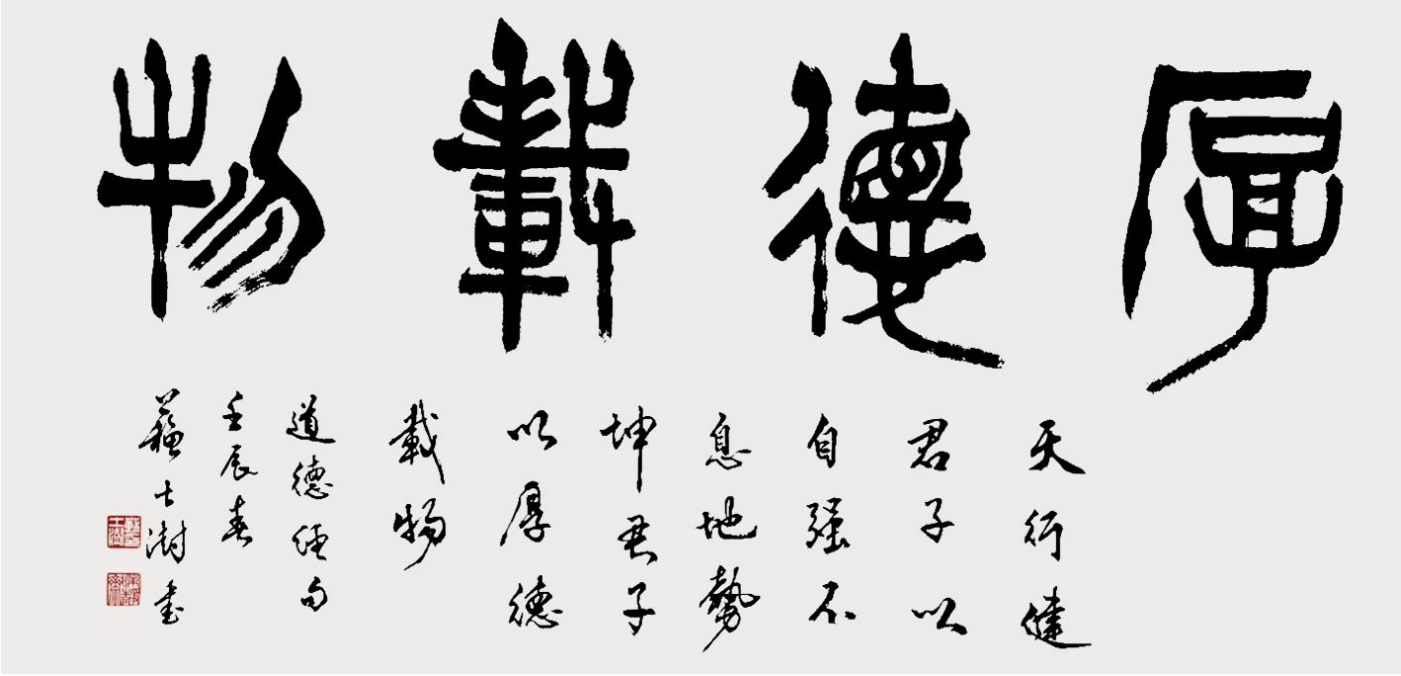 厚德載物
天行健
君子以
自强不
息地勢
坤君子
以厚德
載物
道德经句
壬辰春
蘇士澍書